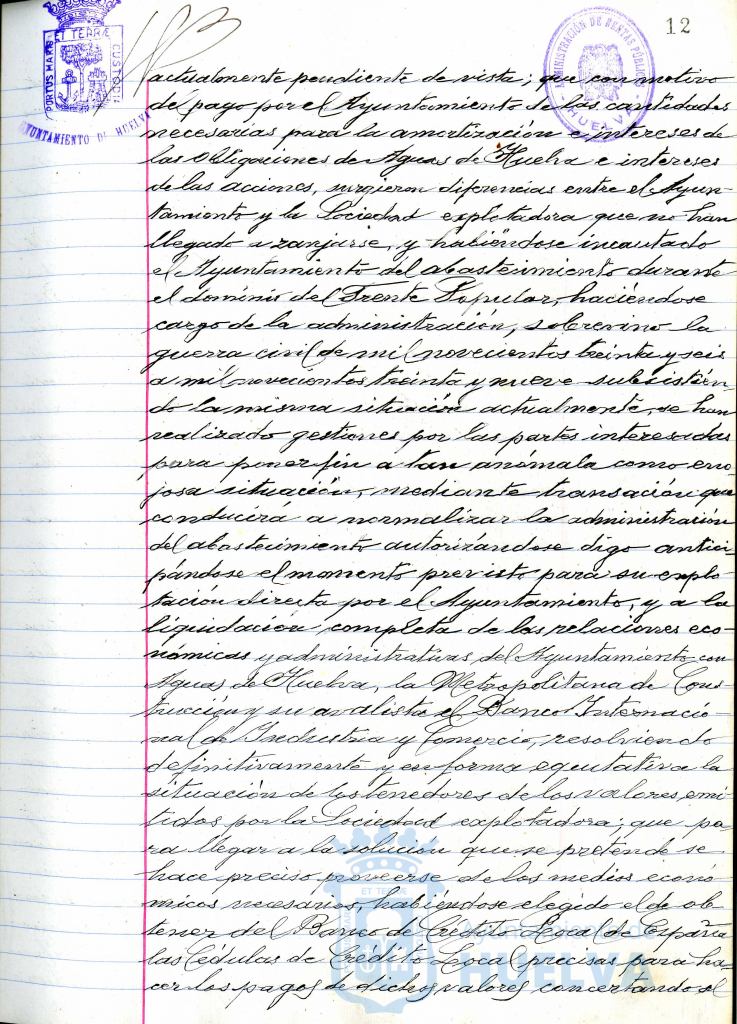 12
PORTUS MARIS ET TERRÆ CUSTODIA
AYUNTAMIENTO DE HUELVA
ADMINISTRACIÓN DE RENTAS PÚBLICAS
HUELVA
actualmente pendiente de vista; que con motivo
del pago por el Ayuntamiento de las cantidades
necesarias para la amortización e intereses de
las Obligaciones de Aguas de Huelva e intereses
de las acciones, surgieron diferencias entre el Ayun-
tamiento y la Sociedad explotadora que no han
llegado a zanjarse, y habiéndose incautado
el Ayuntamiento del abastecimiento durante
el dominio del Frente Popular, haciéndose
cargo de la administración, sobrevino la
guerra civil de mil novecientos treinta y seis
a mil novecientos treinta y nueve subsistien-
do la misma situación actualmente, se han
realizado gestiones por las partes interesadas
para poner fin a tan anómala como eno-
josa situación, mediante transación que
conducirá a normalizar la administración
del abastecimiento autorizándose digo antici-
pándose el momento previsto para su explo-
tación directa por el Ayuntamiento, y a la
liquidación completa de las relaciones eco-
nómicas y administrativas del Ayuntamiento con
Aguas de Huelva, la Metropolitana de Cons-
trucción y su avalista el Banco Internacio-
nal de Industria y Comercio, resolviendo
definitivamente y en forma equitativa la
situación de los tenedores de los valores emi-
tidos por la Sociedad explotadora; que pa-
ra llegar a la solución que se pretende se
hace preciso proveerse de los medios econó-
micos necesarios, habiéndose elegido el de ob-
tener del Banco de Crédito Local de España
las Cédulas de Crédito Local precisas para ha-
cer los pagos de dichos valores concertando al
Ayuntamiento de
HUELVA